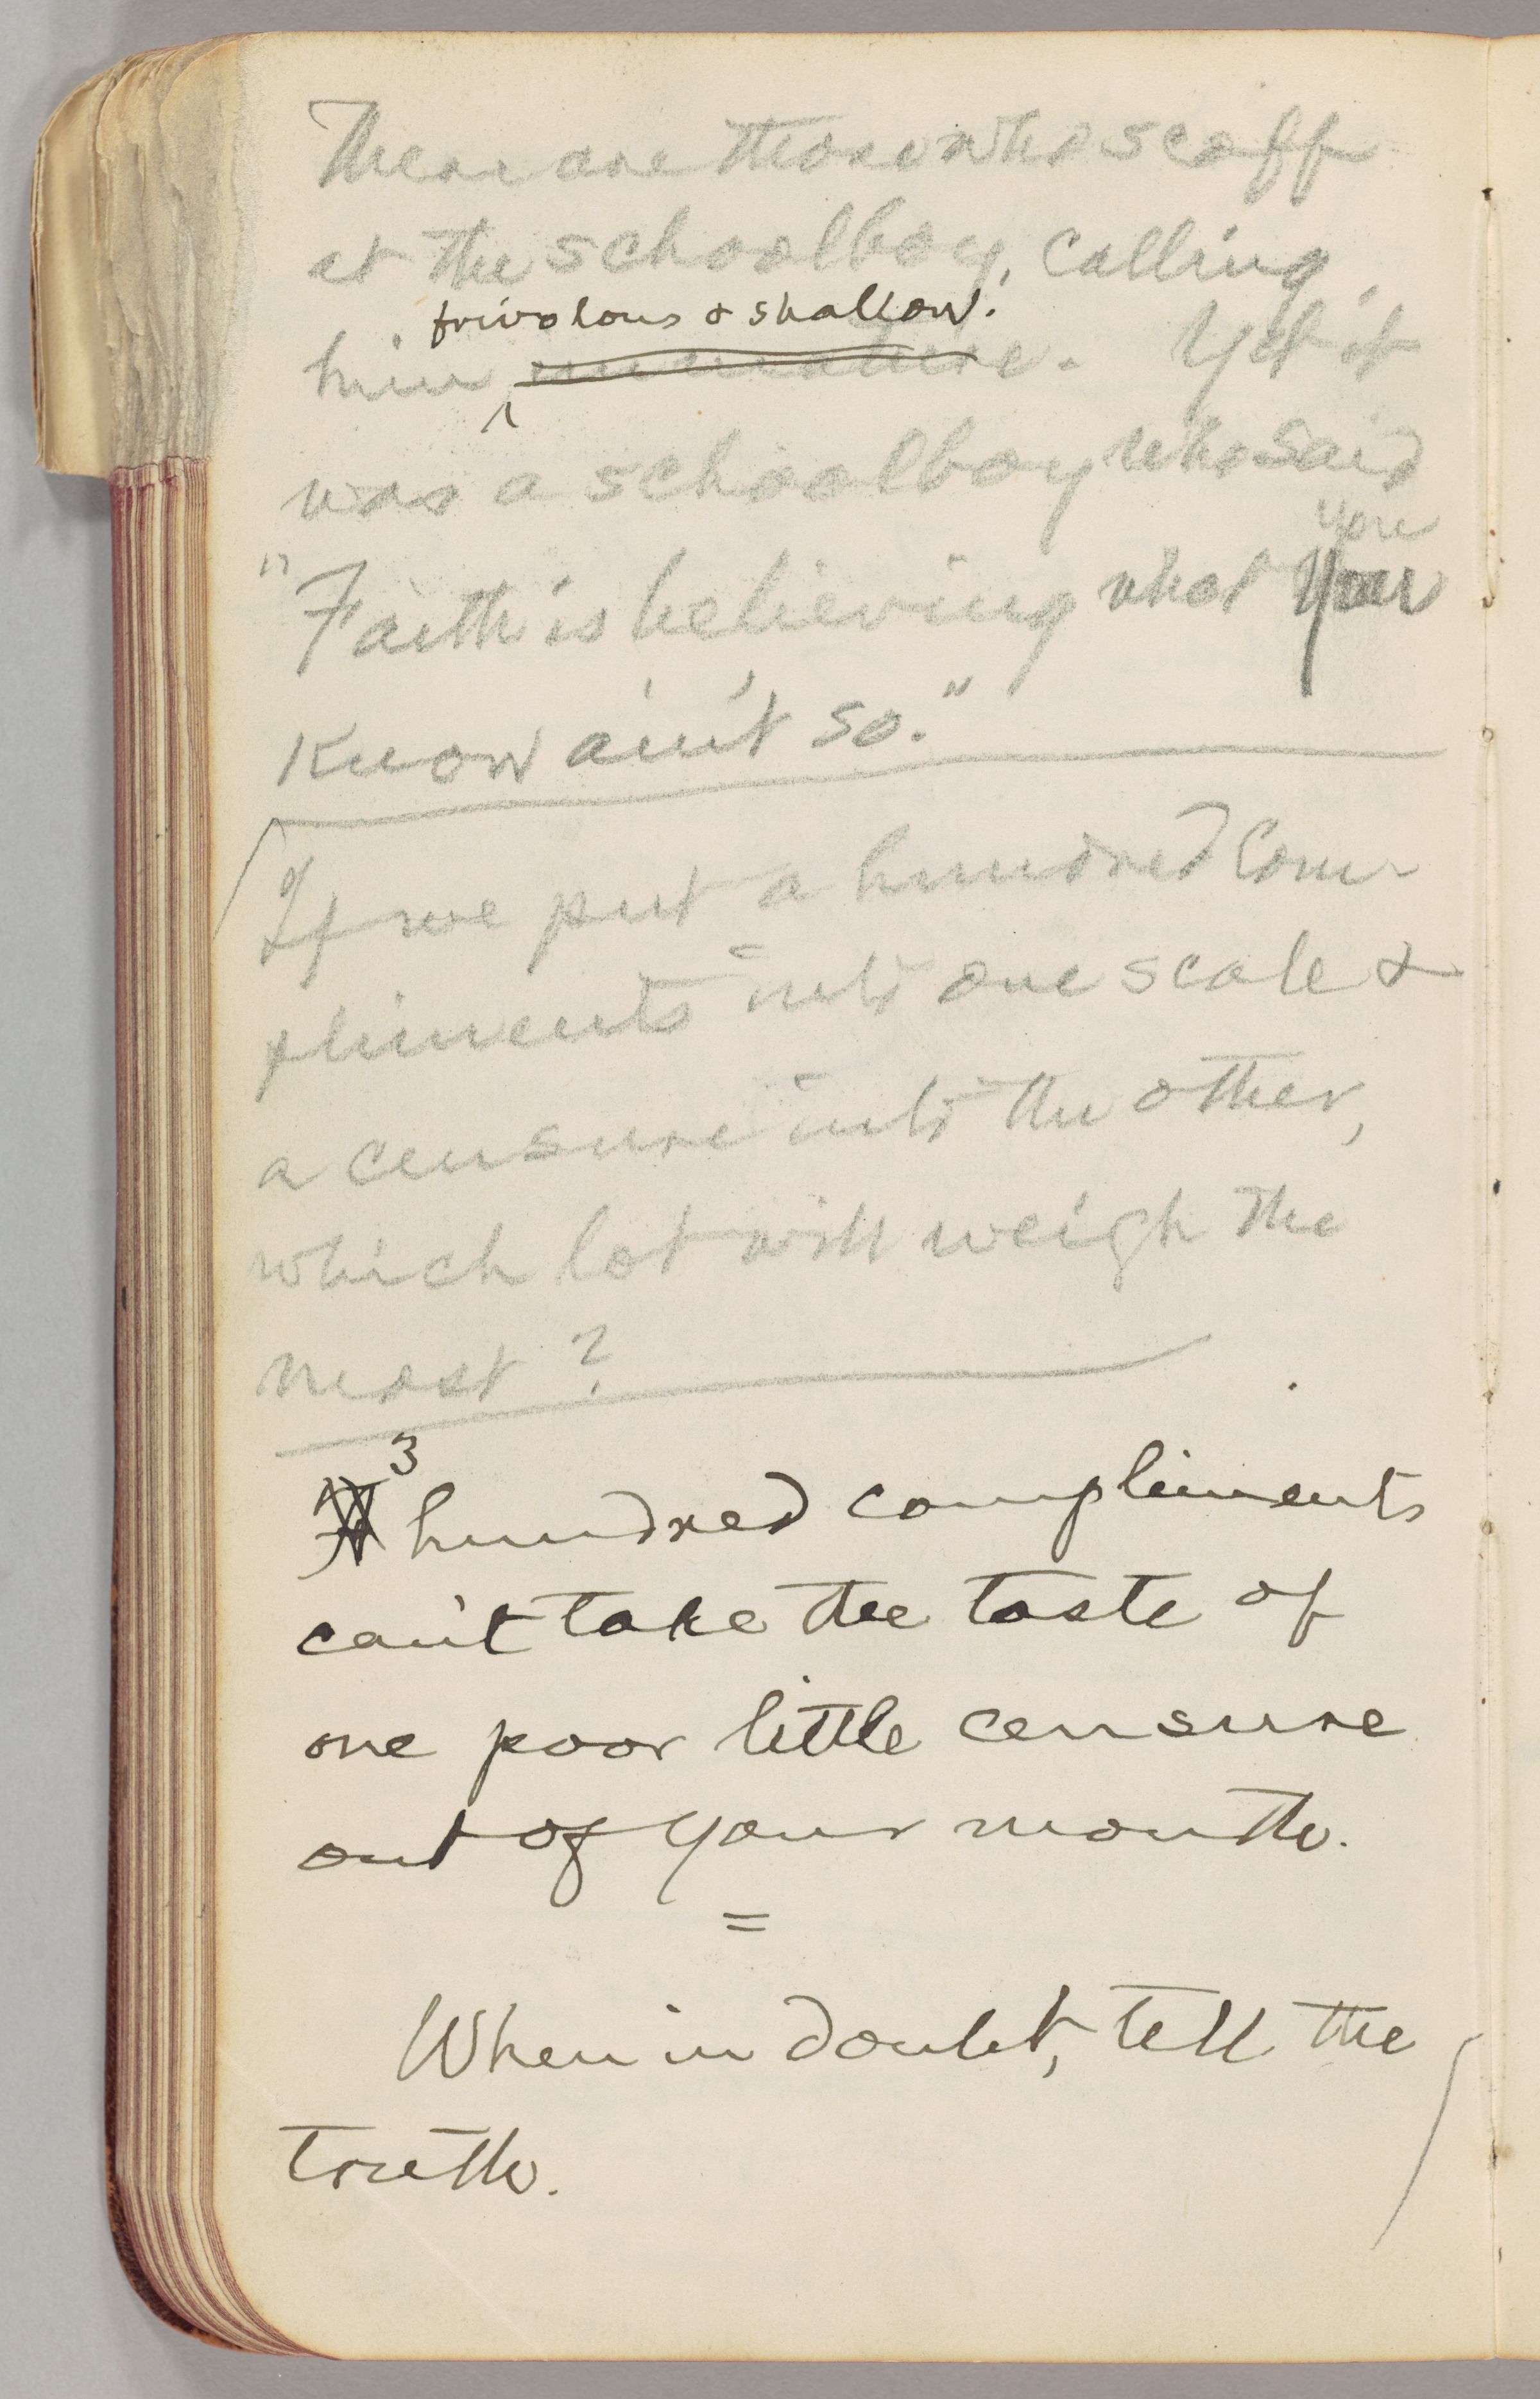 There are those who scoff
at the schoolboy, calling
frivolous & shallow.
him immature. Yet it
was a schoolboy who said
you
"Faith is believing what you
know ain't so."
If we put a hundred com-
pliments into one scale &
a censure into the other,
which lot will weigh the
most?
3
hundred compliments
can't take the taste of
one poor little censure
out of your mouth.
=
When in doubt, tell the
truth.